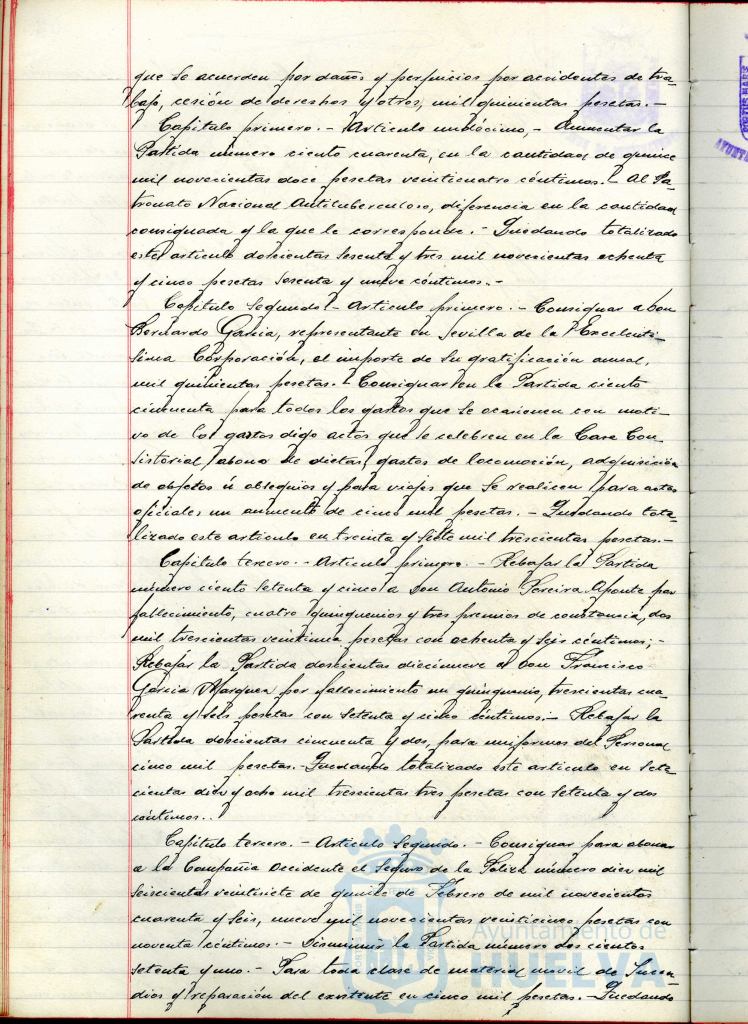 que se acuerden por daños y perjuicios por accidentes de tra-
bajo, cesión de derechos y otros, mil quinientas pesetas.-
Capítulo primero.- Artículo undécimo,- Aumentar la
Partida número ciento cuarenta, en la cantidad de quince
mil novecientas doce pesetas veinticuatro céntimos.- Al Pa-
tronato Nacional Antituberculoso, diferencia en la cantidad
consignada y la que le corresponde.- Quedando totalizado
este artículo doscientas sesenta y tres mil novecientas ochenta
y cinco pesetas sesenta y nueve céntimos.-
Capítulo Segundo.- Artículo primero.- Consignar a Don
Bernardo García, representante en Sevilla de la Excelentí-
sima Corporación, el importe de su gratificación anual,
mil quinientas pesetas.- Consignar en la Partida ciento
cincuenta para todos los gastos que se ocasionen con moti-
vo de los gastos digo actos que se celebren en la Casa Con-
sistorial, abono de dietas, gastos de locomoción, adquisición
de objetos u obsequios y para viajes que se realicen para actos
oficiales un aumento de cinco mil pesetas.- Quedando tota-
lizado este artículo en treinta y siete mil trescientas pesetas.-
Capítulo tercero.- Artículo primero.- Rebajar la Partida
número ciento setenta y cinco a Don Antonio Pereira Aponte por
fallecimiento, cuatro quinquenios y tres premios de constancia, dos
mil trescientas veintiuna pesetas con ochenta y seis céntimos;-
Rebajar la Partida doscientas diecinueve a Don Francisco
García Márquez por fallecimiento un quinquenio, trescientas cua-
renta y seis pesetas con setenta y cinco céntimos.- Rebajar la
Partida doscientas cincuenta y dos, para uniformes del Personal
cinco mil pesetas.- Quedando totalizado este artículo en sete-
cientas diez y ocho mil trescientas tres pesetas con setenta y dos
céntimos..
Capítulo tercero.- Artículo Segundo.- Consignar para abonar
a la Compañía Occidente el Seguro de la Póliza número diez mil
seiscientas veintisiete de quince de Febrero de mil novecientos
cuarenta y seis, nueve mil novecientas veinticinco pesetas con
noventa céntimos.- Disminuir la Partida número dos cientos
setenta y uno.- Para toda clase de material móvil de Incen-
dios y reparación del existente en cinco mil pesetas.- Quedando
Ayuntamiento de
HUELVA